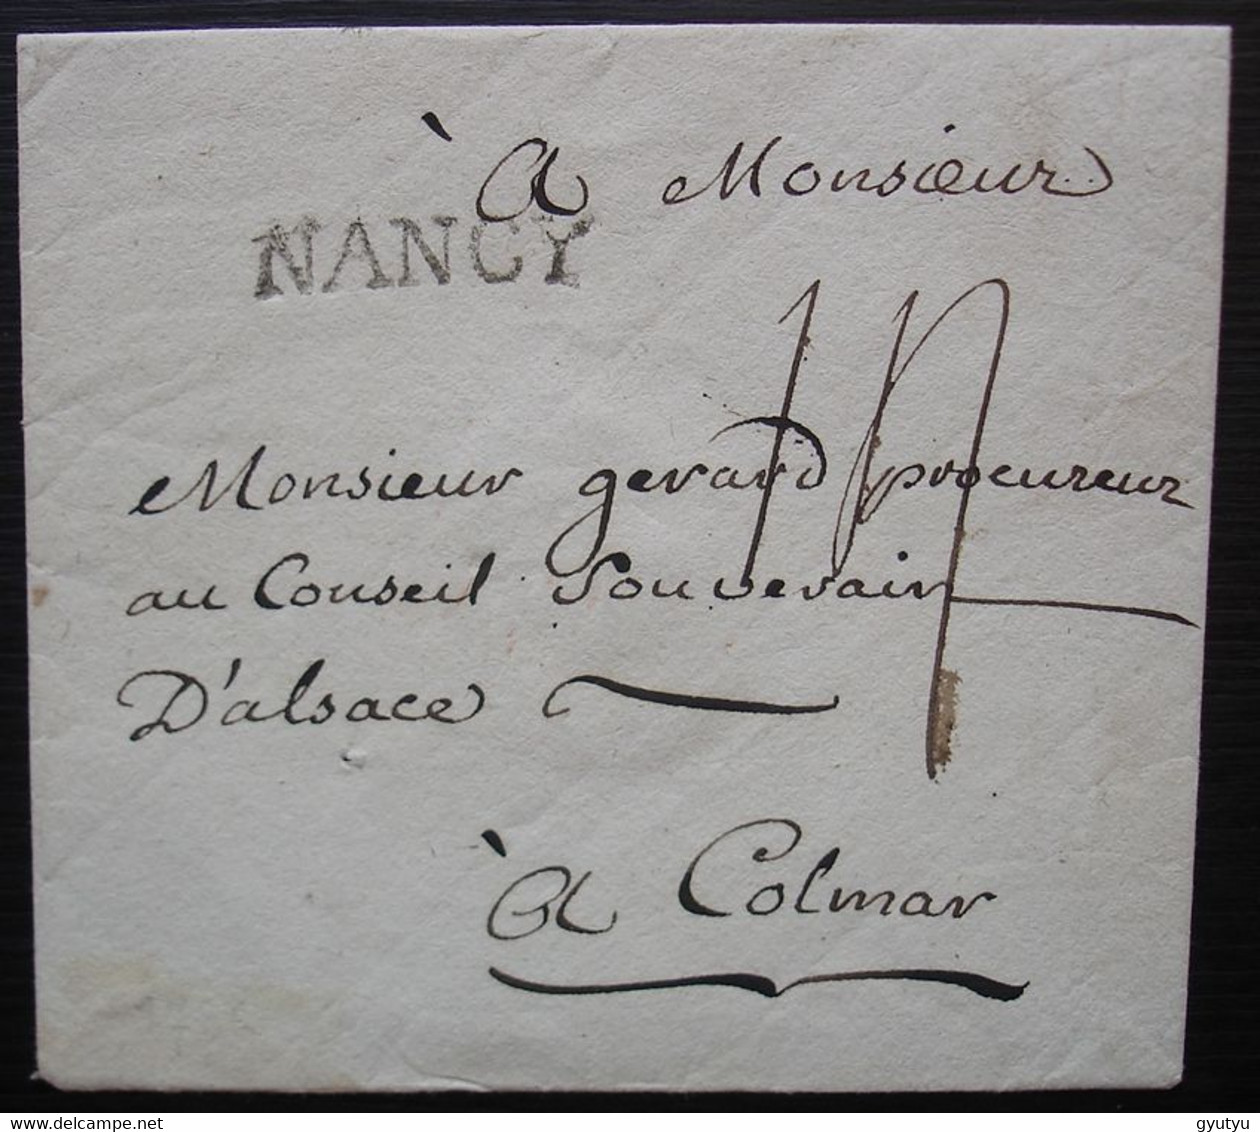 à Monsieur
NANCY
Monsieur gerard procureur
au Conseil Souverain
D'alsace
à Colmar
delcampe.net
gyutyu